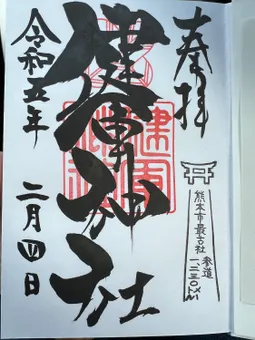 奉拝
熊本市最古社
参道
一、二三〇メートル
健軍神社
健軍神社
令和五年
二月四日